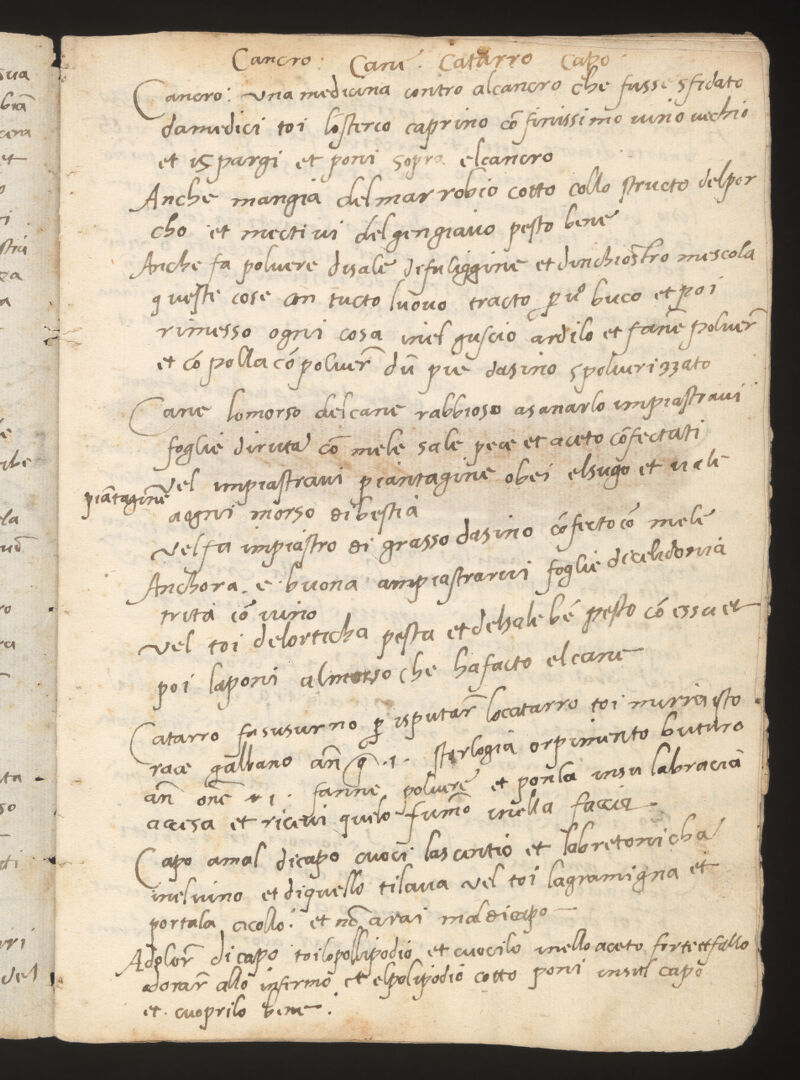 Cancro: Cane. Catarro Capo
Cancro: una medicina contro alcancro che fusse sfidato
damedici toi losterco caprino cõ finissimo vino vechio
et ispargi et poni sopra elcancro
Anche mangia delmarrobio cotto collo structo delpor
cho et mectivi delgengiavo pesto bene
Anche fa polvere disale defuliggine et dinchiostro mescola
queste cose con tucto luovo tracto p uº buco et poi
rimesso ogni cosa inel guscio ardilo et fane polver
et cõpolla cõ polver dũ pie dasino spolverizzato
Cane lomorso delcane rabbioso asanarlo impiastravi
foglie diruta cõ mele sale pece et aceto cõfectati
Vel impiastravi piantagine obei elsugo et vale
piãtagine
aogni morso dibestia
Vel fa impiastro di grasso dasino cõfecto cõ mele
Anchora e buona ampiastrarvi foglie dicelidonia
trita cõ vino
Vel toi delorticha pesta et delsale bẽ pesto cõ essa et
poi laponi almorso che hafacto elcane
Catarro fa susurno p isputar locatarro toi mirria sto
race galbano añ .1. sterlogia orpimento buturo
añ onc 1. fanne polvere et ponla insu labracia
accesa et ricevi quelo fumõ inella faccia
Capo amal dicapo cuoci lascentio et labretonicha
inelvino et diquello tilava vel toi lagramigna et
portala acollo: et nõ arai mal dicapo
Adolor dicapo toilopollipodio et cuocilo inello aceto forte et fallo
odorar allo infermo et elpolipodio cotto poni insul capo
et cuoprilo bene: